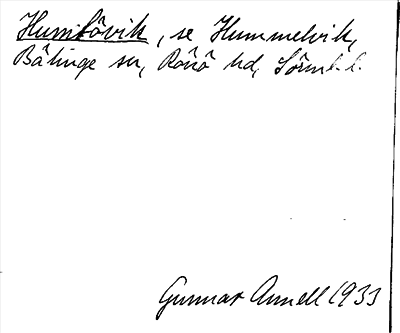 Humlövik, se Hummelvik,
Bälinge sn, Rönö hd, Sörml. l.
Gunnar Annell 1933